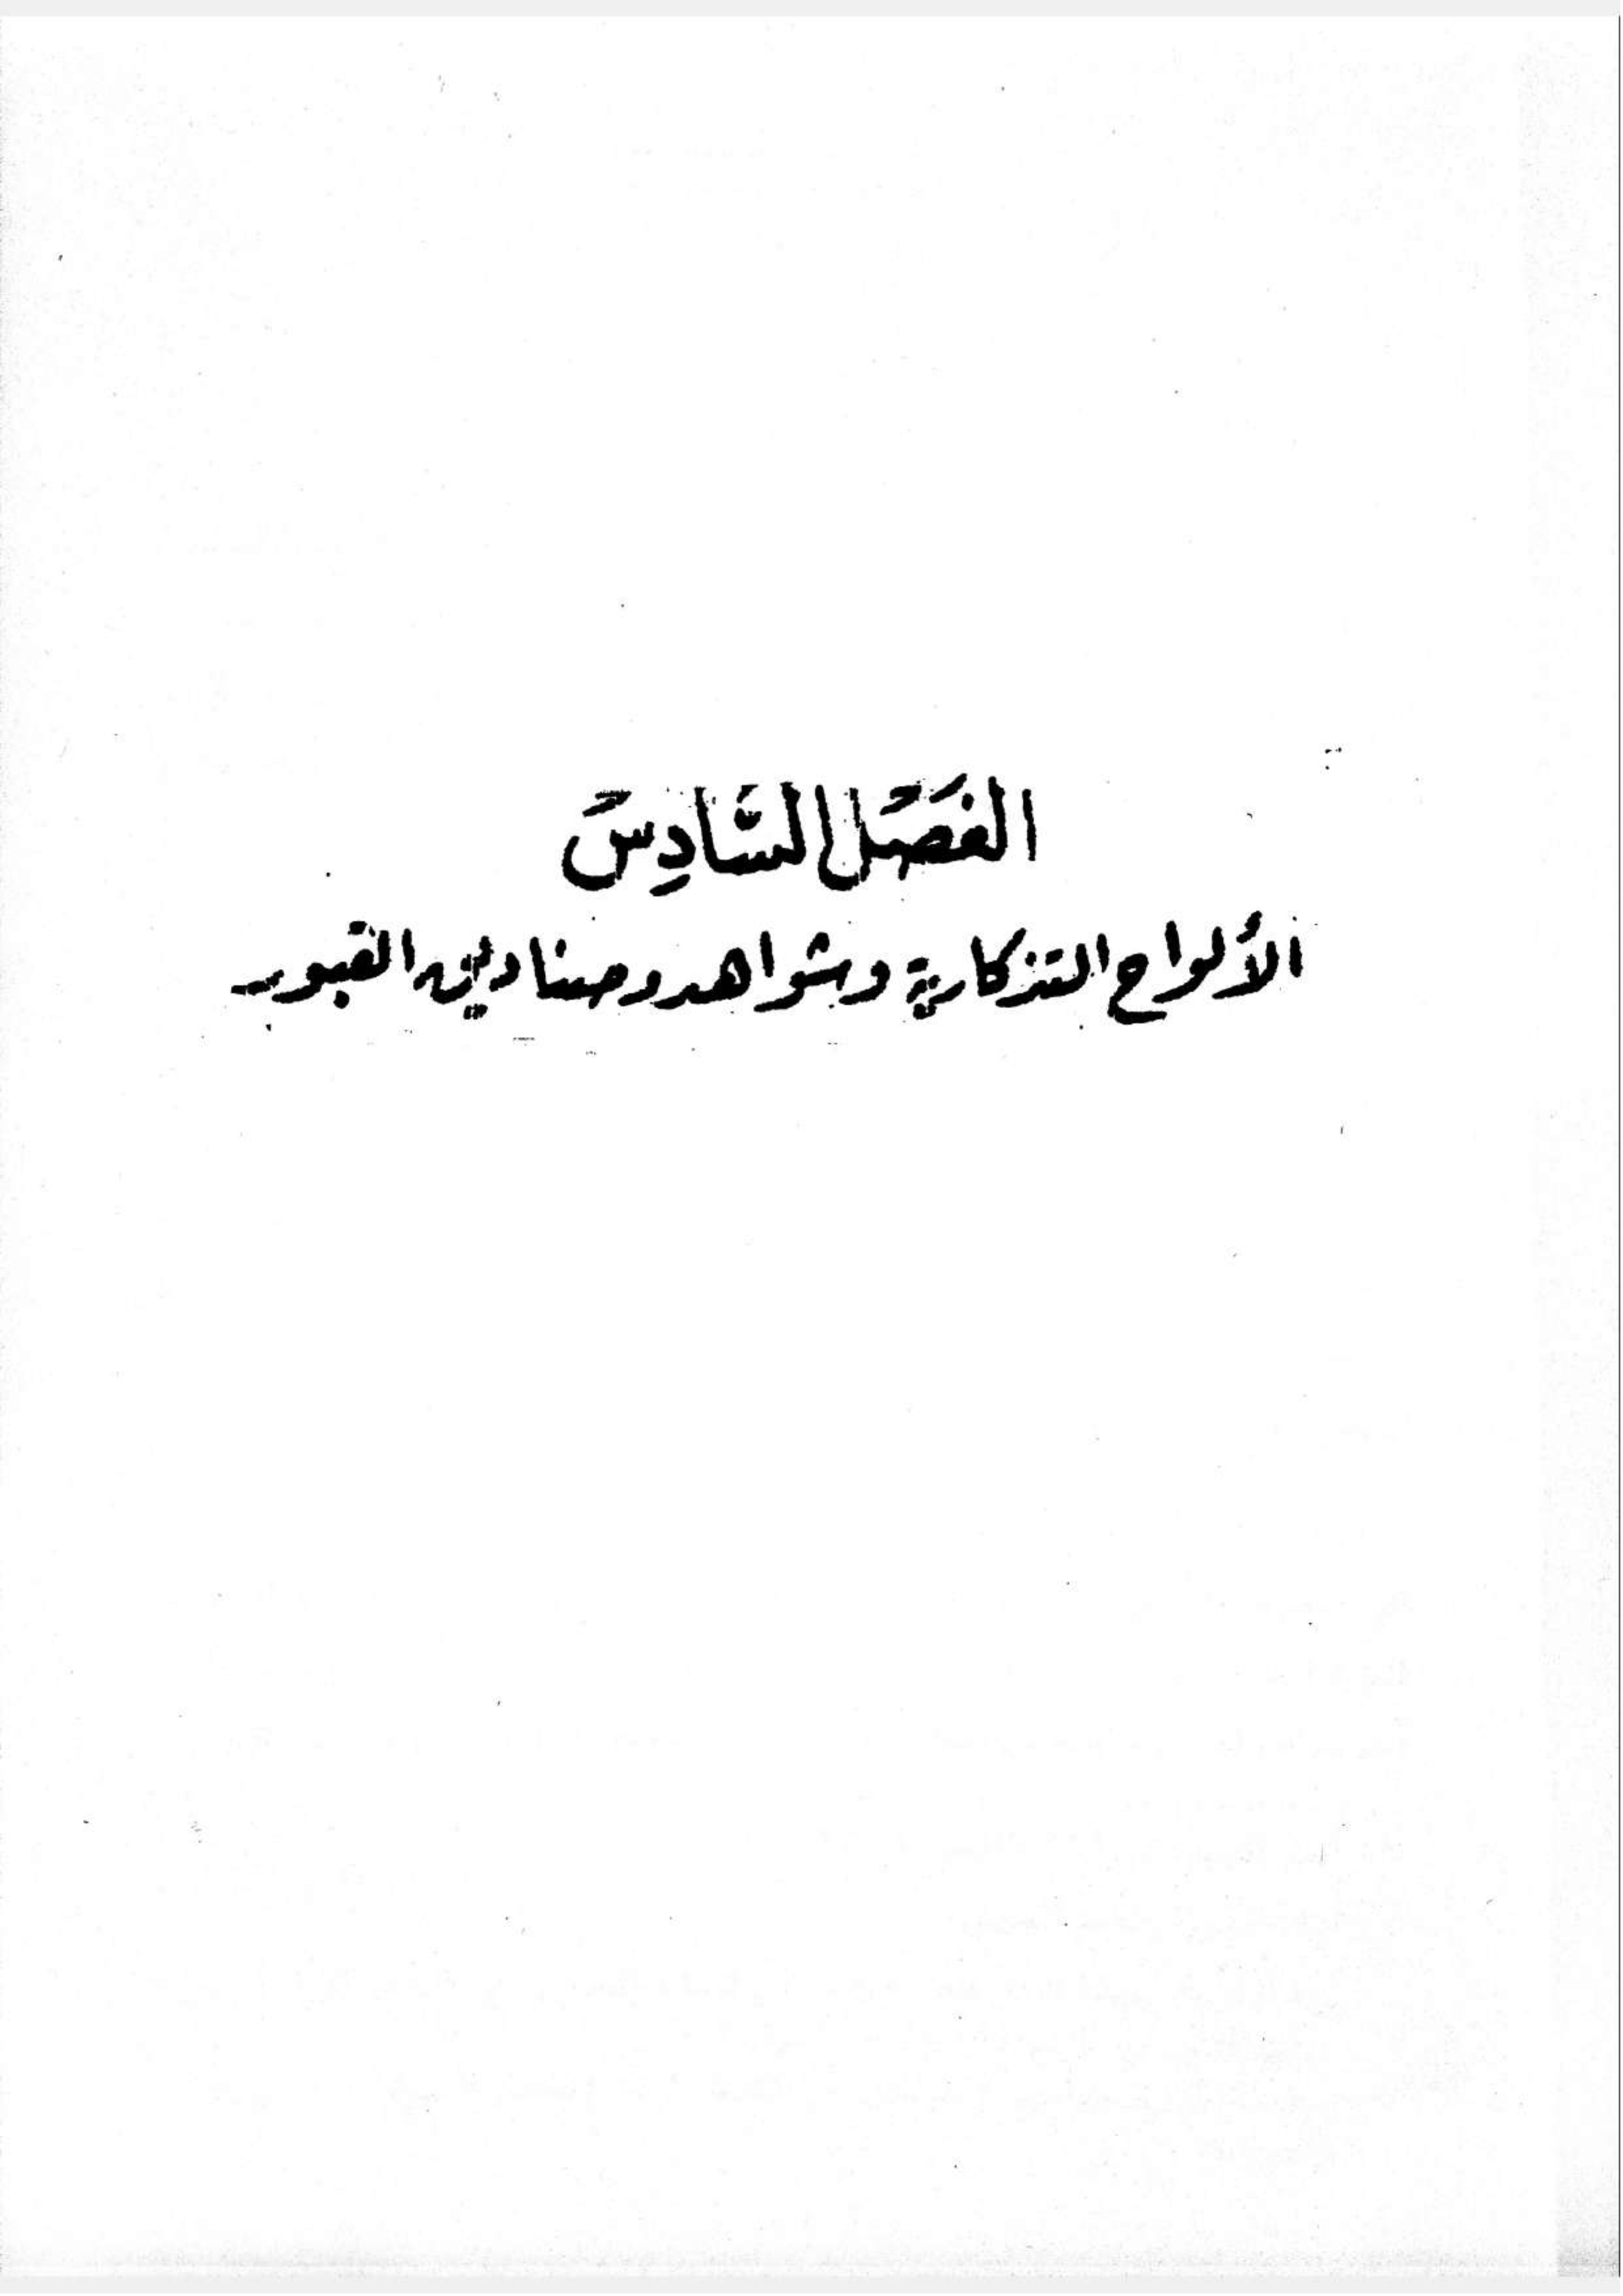 الفَصْل السَّادِسُ
الألواح التذكارية وشواهد وصناديق القبور